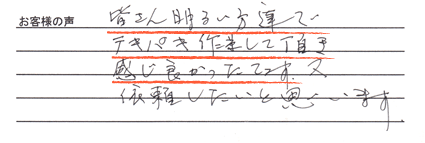 お客様の声
皆さん明るい方達で
テキパキ作業して頂き
感じ良かったてす。又
依頼したいと思います